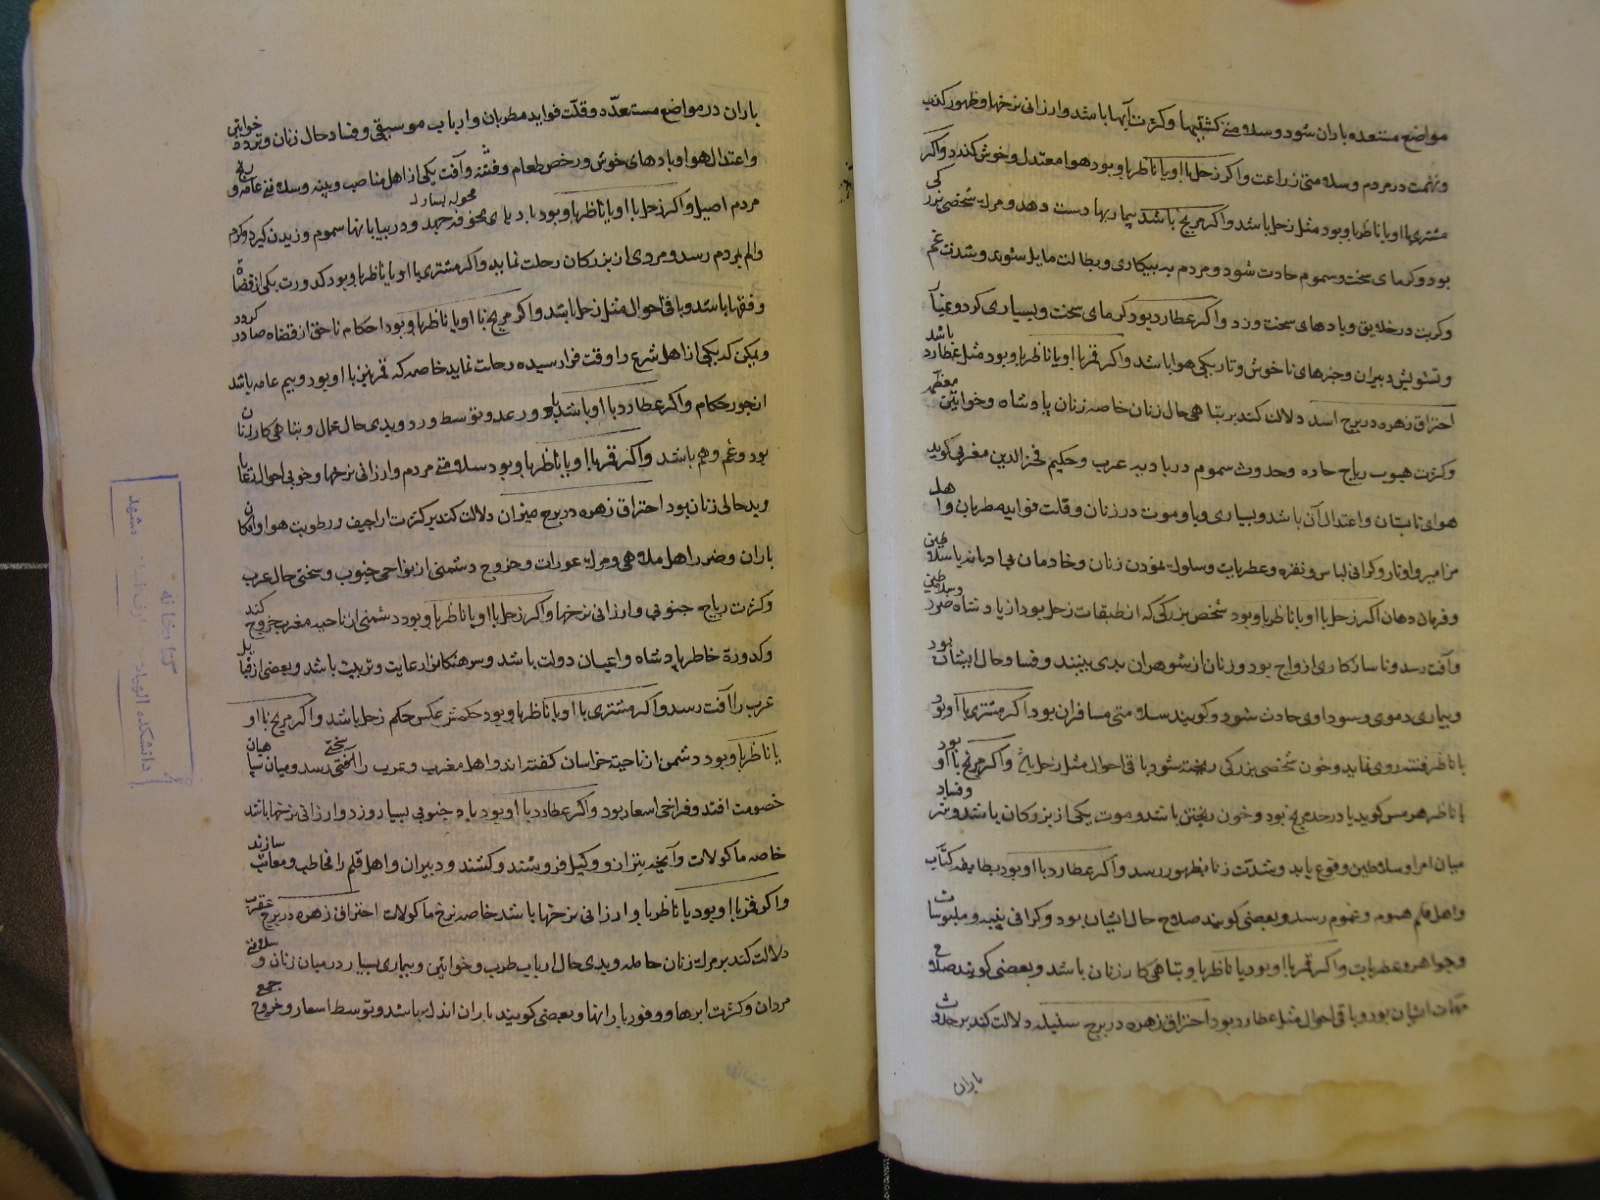 مواضع مستعده باران شود و سلامتی کشتیها و کثرت آبها باشد و ارزانی نرخها و ظهور کذب
و تهمت در مردم و سلامتی زراعت و اگر زحل با او یا ناظر باو بود هوا معتدل و خوش گذرد و اگر
مشتری با او یا ناظر باو بود مثل زحل باشد و اگر مریخ باشد بیماریها دست دهد و مرگ شخصی بزرگی
بود و گرمای سخت و سموم حادث شود و مردم به بیکاری و بطالت مایل شوند و شدت غم
و کربت در خلایق و بادهای سخت وزد و اگر عطارد بود گرمای سخت و بسیاری گرد و
و تشویش دبیران و خبرهای ناخوش و تاریکی هوا باشد و اگر قمر با او یا ناظر باو بود مثل عطارد باشد
احتراق زهره در برج اسد دلالت کند بر تباهی حال زنان خاصه زنان پادشاه و خواتین معظمه
و کثرت هبوب ریاح حاره و حدوث سموم در بادیه عرب و حکیم فخرالدین مغربی گوید
هوای تابستان و اعتدال آن باشد و بسیاری وبا و موت در زنان و قلت فواید مطربان و اهل
مزامیر و اوتار و گرانی لباس و نقره و عطریات و سلوک نمودن زنان و خادمان با سلاطین
و فرمان دهان اگر زحل با او یا ناظر باو بود شخص بزرگی که از طبقات زحل بود از پادشاه ضرر
و آفت رسد و ناسازکاری ازواج بود و زنان از شوهران بدی بینند و فساد حال ایشان بود
و بیماری دموی و سوداوی حادث شود و گویند سلامتی مسافران بود اگر مشتری با او بود
یا ناظر فتنه روی نماید و خون شخصی بزرگی ریخته شود باقی احوال مثل زحل و اگر مریخ با او بود
یا ناظر هرمس گوید یا در حد مریخ بود و خون ریختن باشد و موت یکی از بزرگان باشد و فساد
میان امرا و سلاطین وقوع یابد و شدت زنا بظهور رسد و اگر عطارد با او بود بطایفه کتّاب
و اهل قلم هموم و غموم رسد و بعضی گویند صلاح حال ایشان بود و گرانی پنبه و ملبوسات
و جواهر و عطریات و اگر قمر با او بود یا ناظر باو تباهی کار زنان باشد و بعضی گویند صلاح
مهمات ایشان بود و باقی احوال مثل عطارد بود احتراق زهره در برج سنبله دلالت کند بر حدوث
باران
باران در مواضع مستعدّه و قلّت فواید مطربان و ارباب موسیقی و فساد حال زنان و خواتین
و اعتدال هوا و بادهای خوش و رخص طعام و فتنه و آفت یکی از اهل مناصب و سلامتی عامه و
مردم اصیل و اگر زحل با او یا ناظر باو بود بادهای مخوف جهد و در بیابانها سموم وزیدن گیرد و کرم
والم بمردم رسد و مردی از بزرگان رحلت نماید و اگر مشتری با او یا ناظر باو بود کدورت یکی از قضاة
و فقها باشد و باقی احوال مثل زحل باشد و اگر مریخ با او یا ناظر باو بود احکام ناحق از قضاه صادر گردد
و یمکن که یکی از اهل شرع را وقت فرا رسیده رحلت نماید خاصه که قمر نیز با او بود و بیم عامه باشد
از جور حکام و اگر عطارد با او باشد باد و رعد و توسط ورد و بدی حال عمال و تباهی کار زنان
بود و غم و هم باشد و اگر قمر با او یا ناظر باو بود سلامتی مردم و ارزانی نرخها و خوبی احوال
و بد حالی زنان بود احتراق زهره در برج میزان دلالت کند بر کثرت اراجیف و رطوبت هوا و امکان
باران و ضرر اهل ملاهی و مرگ عورات و خروج دشمنی از نواحی جنوب و سختی حال عرب
و کثرت ریاح جنوبی و ارزانی نرخها و اگر زحل با او یا ناظر باو بود دشمنی از ناحیه مغرب خروج کند
و کدورة خاطر پادشاه و اعیان دولت باشد و سرهنگانرا رعایت و تربیت باشد و بعضی از قبایل
عرب را آفت رسد و اگر مشتری با او یا ناظر باو بود حکمش عکس حکم زحل باشد و اگر مریخ با او
یا ناظر باو بود دشمن از ناحیت خراسان گفته اند و اهل مغرب و عرب را سختی رسد و میان سپاهیان
خصومت افتد و فراخی اسعار بود و اگر عطارد با او بود باد جنوبی بسیار وزد و ارزانی نرخها باشد
خاصه ماکولات و آنچه بترازو و کیل فروشند و کشند و دبیران و اهل قلم را مخاطب و معاتب سازند
و اگر قمر با او بود یا ناظر باو ارزانی نرخها باشد خاصه نرخ ماکولات احتراق زهره در برج عقرب
دلالت کند بر مرگ زنان حامله و بدی حال ارباب طرب و خواتین و بیماری بسیار در میان زنان و سلامتی
مردان و کثرت ابرها و وفور بارانها و بعضی گویند باران اندک باشد و توسط اسعار و خروج جمع
کتابخانه
دانشکده الهیات
مشهد